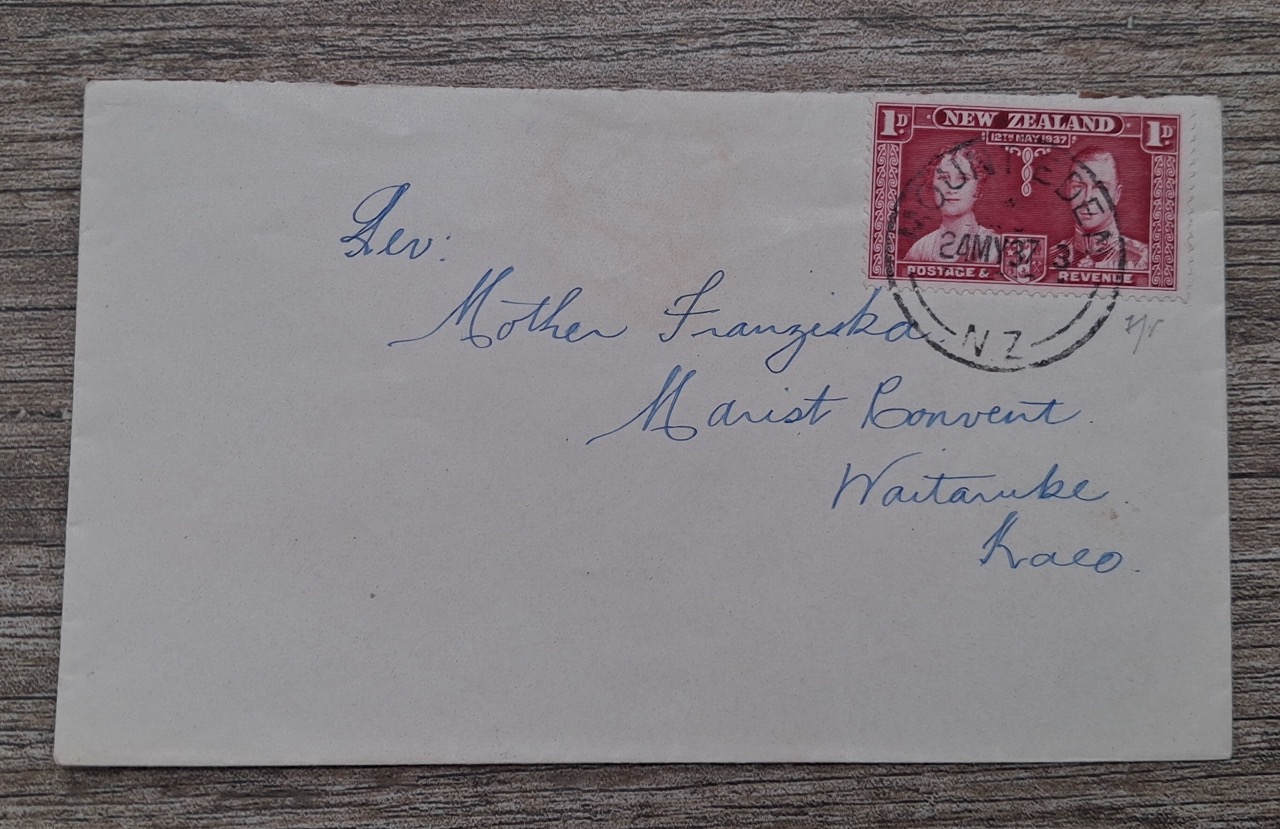 1D NEW ZEALAND 1D
12TH MAY 1937
POSTAGE & REVENUE
MOUNT EDEN
24MY37
N Z
Rev:
Mother Franziska
Marist Convent
Waitaruke
Kaeo.